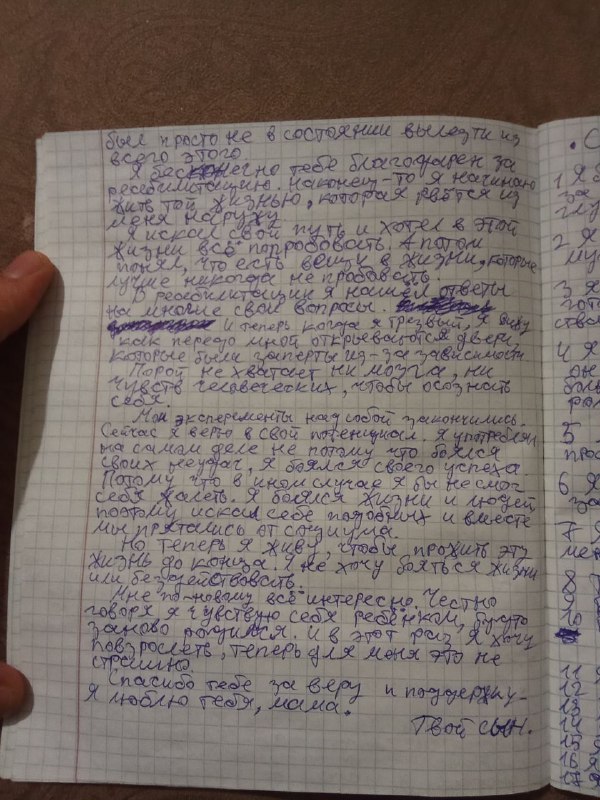 был просто не в состоянии вылезти из
всего этого
Я бесконечно тебе благодарен за
реабилитацию. Наконец-то я начинаю
жить той жизнью, которая рвётся из
меня наружу.
Я искал свой путь и хотел в этой
жизни всё попробовать. А потом
понял, что есть вещи в жизни, которые
лучше никогда не пробовать.
В реабилитации я нашёл ответы
на многие свои вопросы.
и теперь когда я трезвый, я вижу
как передо мной открываются двери,
которые были заперты из-за зависимости
Порой не хватает ни мозга, ни
чувств человеческих, чтобы осознать
себя.
Мои эксперементы над собой закончились.
Сейчас я верю в свой потенциал. Я употреблял
на самом деле не потому что боялся
своих неудач, я боялся своего успеха
Потому что в ином случае я бы не смог
себя жалеть. Я боялся жизни и людей
поэтому искал себе подобных и вместе
мы прятались от социума.
Но теперь я живу, чтобы прожить эту
жизнь до конца. Я не хочу бояться жизни
или бездействовать.
Мне по-новому всё интересно. Честно
говоря я чувствую себя ребёнком, будто
заново родился. И в этот раз я хочу
повзрослеть, теперь для меня это не
страшно.
Спасибо тебе за веру и поддержку-
Я люблю тебя, мама.
Твой сын.
• С
1 Я б
за
глу
2 Я
му
3 Я
гот
ство
4 Я
он
боль
раз
5
прос
6 Я
за
7 Я
мен
8
9
10
11 Я
12
13
14
15 Я
16 Я
17 Я